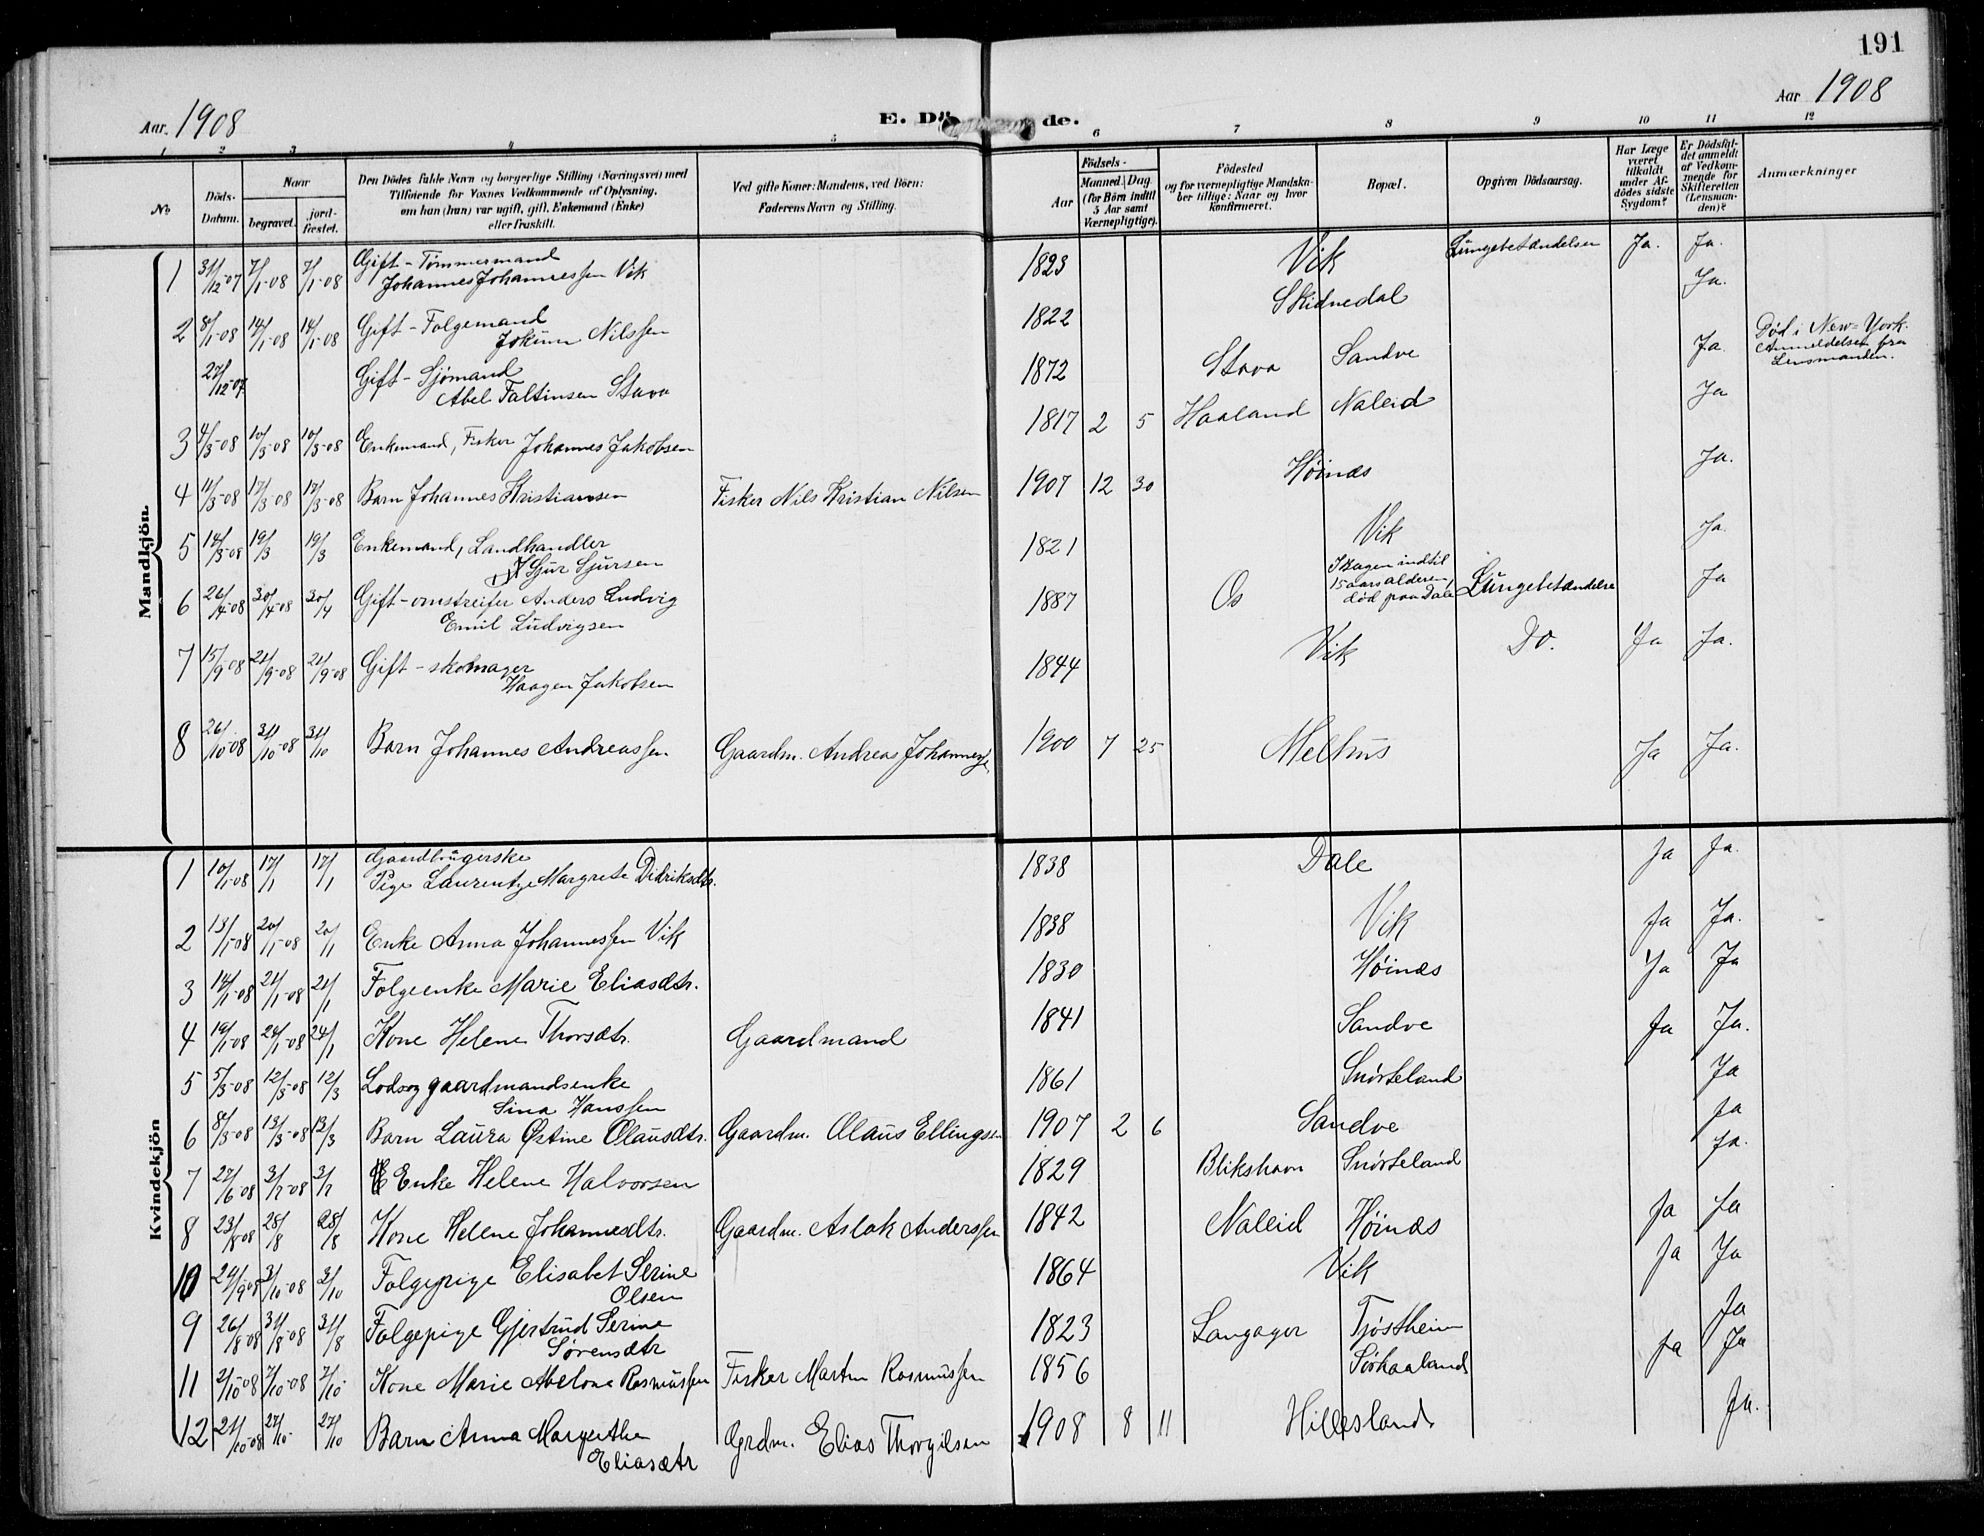 191
Aar. 1908
E. Dö de.
Aar 1908
1 2 3 4 5 6 7 8 9 10 11 12
No
Döds-Datum.
Naar
begravet.
jord-fæstet.
Den Dödes fulde Navn og borgerlige Stilling (Næringsvei) med
Tilföiende for Voxnes Vedkommende af Oplysning,
om han (hun) var ugift, gift, Enkemand (Enke)
eller fraskilt.
Ved gifte Koner: Mandens, ved Börn:
Faderens Navn og Stilling.
Födsels-
Aar
Maaned. Dag
(for Börn indtil
5 Aar samt
Værnepligtige).
Födested
og for værnepligtige Mandskaber tillige: Naar og hvor
Konfirmeret.
Bopæl.
Opgiven Dödsaarsag.
Har Læge været tilkaldt under Afdödes sidste Sygdom?
Er Dödsfaldet anmeldt af Vedkommende for Skifteretten (Lensmanden)?
Anmærkninger
Mandkjön.
1 31/12-07 7/1-08 7/1-08 Gift - Tömmermand
Johannes Johannessen Vik 1823 Vik Lungebetændelse Ja. Ja.
2 8/1-08 14/1-08 14/1-08 Gift - Folgemand
Jokum Nilssen 1822 Skidnedal Ja.
27/12-07 Gift - Sjömand
Abel Faltinsen Stava 1872 Stava Sandve Ja Död i New-York.
Anmeldelsen fra
Lensmanden.
3 4/3-08 10/3-08 10/3-08 Enkemand, Fisker Johannes Jakobsen 1817 2 5 Haaland Naleid Ja
4 11/3-08 17/3-08 17/3-08 Barn Johannes Kristiansen Fisker Nils Kristian Nilsen 1907 12 30 Höinæs Ja.
5 14/3-08 19/3 19/3 Enkemand, Landhandler
Sjur Sjursen 1821 Vik Ja.
6 26/4-08 30/4-08 30/4 Gift - omstreifer Anders Ludvig
Emil Ludvigsen 1887 Os
indtil
15 aarsalderen,
död paa Dale Lungebetændelse Ja
7 15/9-08 21/9-08 21/9-08 Gift - skomager
Haagen Jakobsen 1844 Vik Do. Ja Ja.
8 26/10-08 31/10-08 31/10 Barn Johannes Andreassen Gaardm. Andreas Johannessen 1900 7 25 Melhus Ja Ja.
Kvindekjön
1 10/1-08 17/1 17/1 Gaardbrugerske
Pige Laurentze Margrete Didriksdtr. 1838 Dale Ja Ja.
2 13/1-08 20/1-08 20/1 Enke Anna Johannessen Vik 1838 Vik Ja Ja.
3 14/1-08 21/1-08 21/1 Folgeenke Marie Eliasdtr. 1830 Höinæs Ja Ja
4 19/1-08 24/1-08 24/1 Kone Helene Thorsdtr. Gaardmand 1841 Sandve Ja Ja.
5 5/3-08 12/3-08 12/3 Lods og gaardmandsenke
Sina Hanssen 1861 Snörteland Ja
6 8/3-08 13/3-08 13/3 Barn Laura Østine Olausdtr. Gaardm. Olaus Ellingsen 1907 2 6 Sandve Ja
7 27/6-08 3/7-08 3/7 Enke Helene Halvorsen 1829 Blikshavn Snörteland Ja.
8 23/8-08 28/8 28/8 Kone Helene Johannesdtr. Gaardm. Aslak Anderssen 1842 Naleid Höinæs Ja Ja
10 29/9-08 3/10-08 3/10 Folgepige Elisabet Serine
Olsen 1864 Vik Ja Ja
9 26/8-08 31/8-08 31/8 Folgepige Gjertrud Serine
Sörensdtr 1823 Langager Tjöstheim Ja
11 2/10-08 7/10-08 7/10 Kone Marie Abelone Rasmussen Fisker Martin Rasmussen 1856 Sörhaaland Ja Ja
12 21/10-08 27/10 27/10 Barn Anna Margrethe
Eliasdtr Grdm. Elias Thorgilsen 1908 8 11 Hillesland Ja.